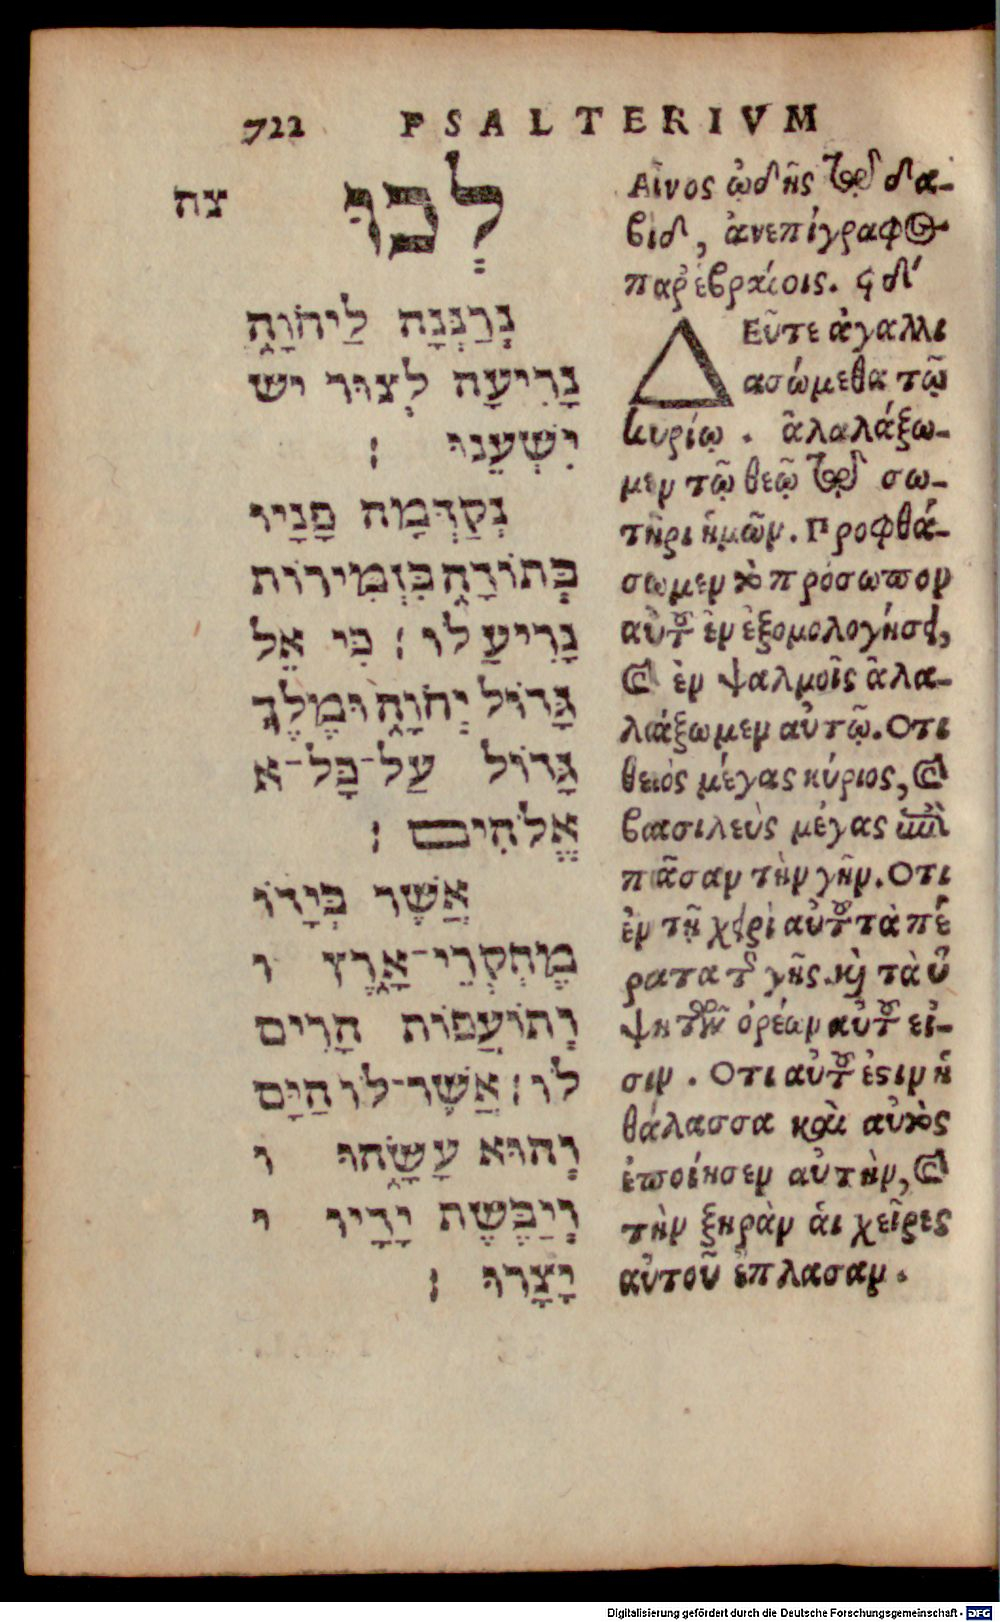 722 PSALTERIVM
צה
לְכוּ
נְרַנְּנָה לַיהֹוָה
נָרִיעָה לְצוּר יש
יִשְׁעֵנוּ :
נְקַדְּמָה פָנָיו
בְּתוֹדָה בִּזְמִירוֹת
נָרִיעַ לוֹ : כִּי אֵל
גָּדוֹל יְהֹוָה וּמֶלֶךְ
גָּדוֹל עַל־כָּל־א
אֱלֹהִים :
אֲשֶׁר בְּיָדוֹ
מֶחְקְרֵי־אָרֶץ ו
וְתוֹעֲפוֹת הָרִים
לוֹ : אֲשֶׁר־לוֹ הַיָּם
וְהוּא עָשָׂהוּ ו
וְיַבֶּשֶׁת יָדָיו י
יָצָרוּ :
Αἶνος ᾠδῆς τῷ δα-
βὶδ, ἀνεπίγραφος
παρ' ἑβραίοις. ϟδ'
ΔΕῦτε ἀγαλλι
ασώμεθα τῷ
κυρίῳ . ἀλαλάξω-
μεν τῷ θεῷ τῷ σω-
τῆρι ἡμῶν. Προφθά-
σωμεν τὸ πρόσωπον
αὐτοῦ ἐν ἐξομολογήσει,
καὶ ἐν ψαλμοῖς ἀλα-
λάξωμεν αὐτῷ. Οτι
θεὸς μέγας κύριος, καὶ
βασιλεὺς μέγας ἐπὶ
πᾶσαν τὴν γῆν. Οτι
ἐν τῇ χειρὶ αὐτοῦ τὰ πέ
ρατα τῆς γῆς. καὶ τὰ ὕ
ψη τῶν ὀρέων αὐτοῦ εἰ-
σιν . Οτι αὐτοῦ ἐστιν ἡ
θάλασσα καὶ αὐτὸς
ἐποίησεν αὐτὴν, καὶ
τὴν ξηρὰν ἁι χεῖρες
αὐτοῦ ἔπλασαν .
Digitalisierung gefördert durch die Deutsche Forschungsgemeinschaft - DFG